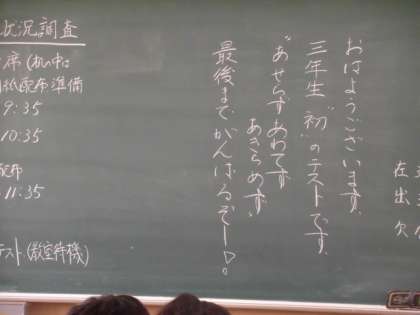 在
出
欠
おはようございます。
三年生"初"のテストです。
"あせらずあわてず
あきらめず"
最後までがんばるぞー!
状況調査
席(机の中に
紙配布準備
9:35
10:35
配布
11:35
テスト(教室待機)